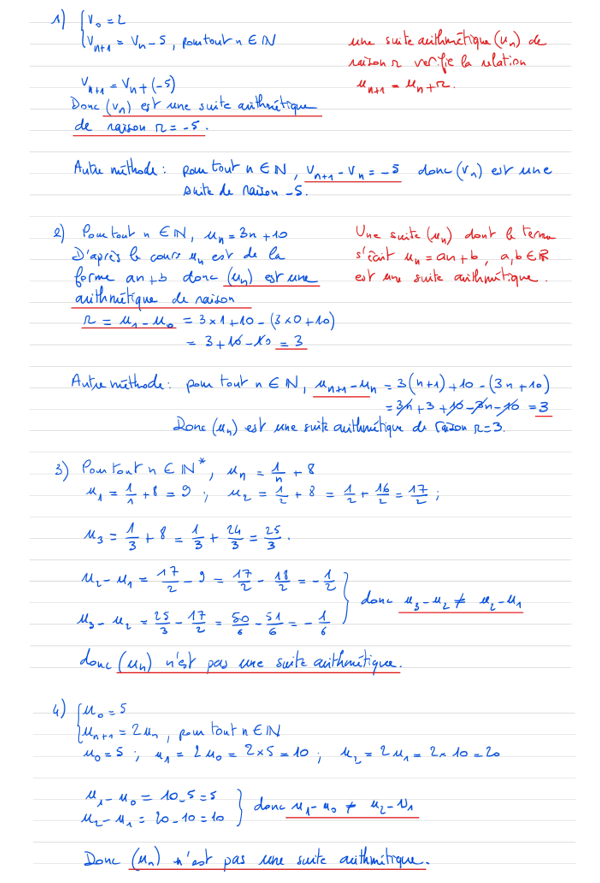 1) { V₀ = 2
V_{n+1} = V_n - 5, pour tout n ∈ ℕ
une suite arithmétique (u_n) de
raison r vérifie la relation
u_{n+1} = u_n + r.
V_{n+1} = V_n + (-5)
Donc (V_n) est une suite arithmétique
de raison r = -5.
Autre méthode : pour tout n ∈ ℕ, V_{n+1} - V_n = -5 donc (V_n) est une
suite de raison -5.
2) Pour tout n ∈ ℕ, u_n = 3n + 10
D'après le cours u_n est de la
forme an + b donc (u_n) est une
arithmétique de raison
Une suite (u_n) dont le terme
s'écrit u_n = an + b, a, b ∈ ℝ
est une suite arithmétique.
r = u₁ - u₀ = 3×1 + 10 - (3×0 + 10)
= 3 + 10 - 10 = 3
Autre méthode : pour tout n ∈ ℕ, u_{n+1} - u_n = 3(n+1) + 10 - (3n + 10)
= 3n + 3 + 10 - 3n - 10 = 3
Donc (u_n) est une suite arithmétique de raison r = 3.
3) Pour tout n ∈ ℕ*, u_n = 1/n + 8
u₁ = 1/1 + 8 = 9 ; u₂ = 1/2 + 8 = 1/2 + 16/2 = 17/2 ;
u₃ = 1/3 + 8 = 1/3 + 24/3 = 25/3.
u₂ - u₁ = 17/2 - 9 = 17/2 - 18/2 = -1/2
} donc u₃ - u₂ ≠ u₂ - u₁
u₃ - u₂ = 25/3 - 17/2 = 50/6 - 51/6 = -1/6
donc (u_n) n'est pas une suite arithmétique.
4) { u₀ = 5
u_{n+1} = 2u_n, pour tout n ∈ ℕ
u₀ = 5 ; u₁ = 2u₀ = 2×5 = 10 ; u₂ = 2u₁ = 2×10 = 20
u₁ - u₀ = 10 - 5 = 5
} donc u₁ - u₀ ≠ u₂ - u₁
u₂ - u₁ = 20 - 10 = 10
Donc (u_n) n'est pas une suite arithmétique.